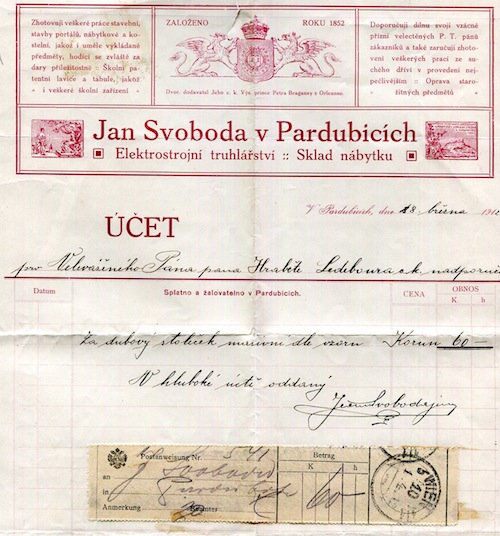 Zhotovuji veškeré práce stavební,
stavby portálů, nábytkové a ko-
stelní, jakož i uměle vykládané
předměty, hodící se zvláště za
dary příležitostné :: Školní pa-
tentní lavice a tabule, jakož
i veškeré školní zařízení
ZALOŽENO ROKU 1852
Dvor. dodavatel Jeho c. k. Vys. prince Petra Braganzy z Orleansu.
Doporučuji dílnu svoji vzácné
přízni velectěných P. T. pánů
zákazníků a také zaručuji zhoto-
vení veškerých prací ze su-
chého dříví v provedení nej-
pečlivějším :: Oprava staro-
žitných předmětů
Jan Svoboda v Pardubicích
Elektrostrojní truhlářství :: Sklad nábytku
V Pardubicích, dne 18. března 191
ÚČET
pro Velevážného Pána pana Hraběte Ledeboura c. k. nadporučí
Datum
Splatno a žalovatelno v Pardubicích.
CENA
OBNOS
K h
Za dubový stoleček masivní dle vzoru Korun 60—
V hluboké úctě oddaný
Jan Svoboda
Postanweisung Nr. 541
Betrag
K h
an J Svoboda
in
60—
Anmerkung
WIEN